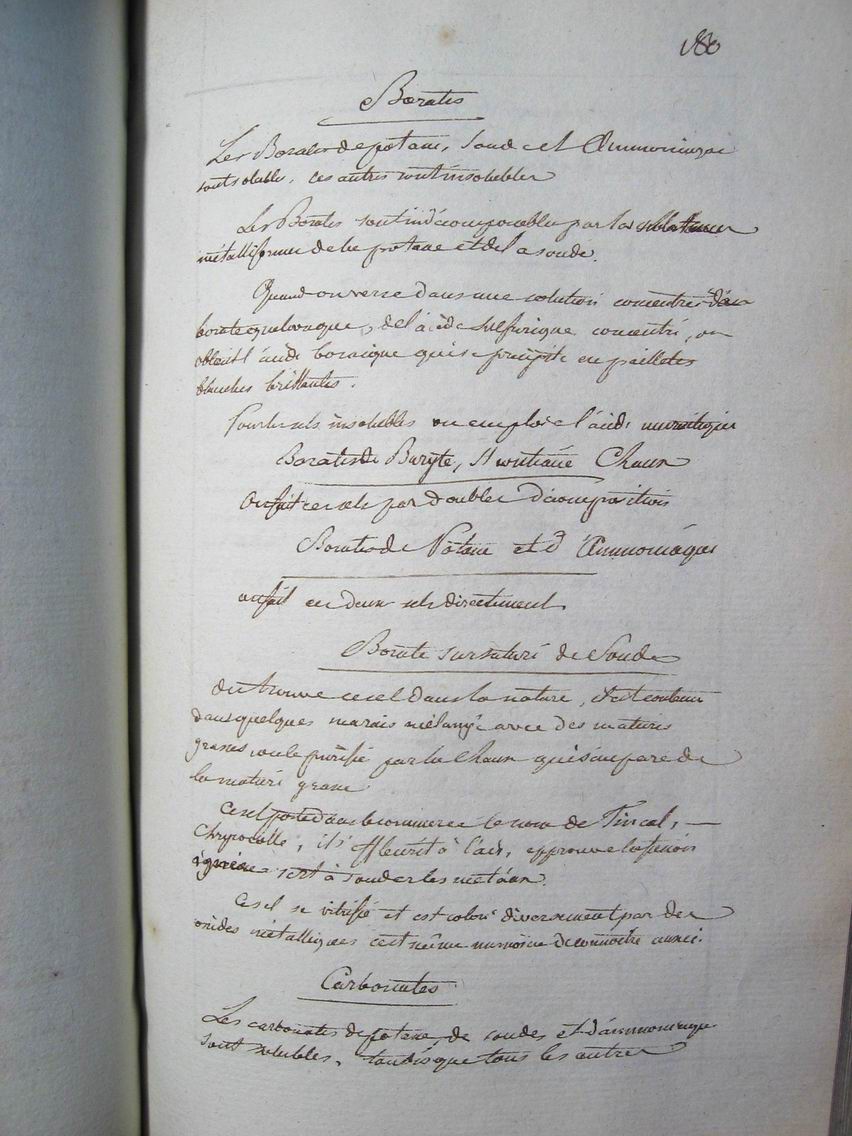 186
Borates
Les Borates de potasse, soude et Ammoniaque
sont solubles, les autres sont insolubles
Les Borates sont indécomposables par les substances
métalliformes de la potasse et de la soude.
Quand on verse dans une solution concentrée d'un
borate quelconque, de l'acide sulfurique concentré, on
obtient l'acide boracique qui se précipite en paillettes
blanches brillantes.
Pour les sels insolubles on emploie l'acide muriatique
Borates de Baryte, Strontiane Chaux
On fait ces sels par doubles décompositions
Borates de Potasse et d'Ammoniaque
on fait ces deux sels directement.
Borate sursaturé de Soude
On trouve ce sel dans la nature, il est contenu
dans quelques marais mélangé avec des matières
grasses on le purifie par la Chaux qui s'empare de
la matière grasse
Ce sel porte dans le commerce le nom de Tincal, —
Chrysocolle, il s'effleurit à l'air, éprouve la fusion
ignée sert à souder les métaux.
Ce sel se vitrifie et est coloré diversement par des
oxides métalliques c'est même un moyen de connoitre ceux-ci.
Carbonates
Les carbonates de potasse, de soudes et d'ammoniaque
sont solubles, tandis que tous les autres